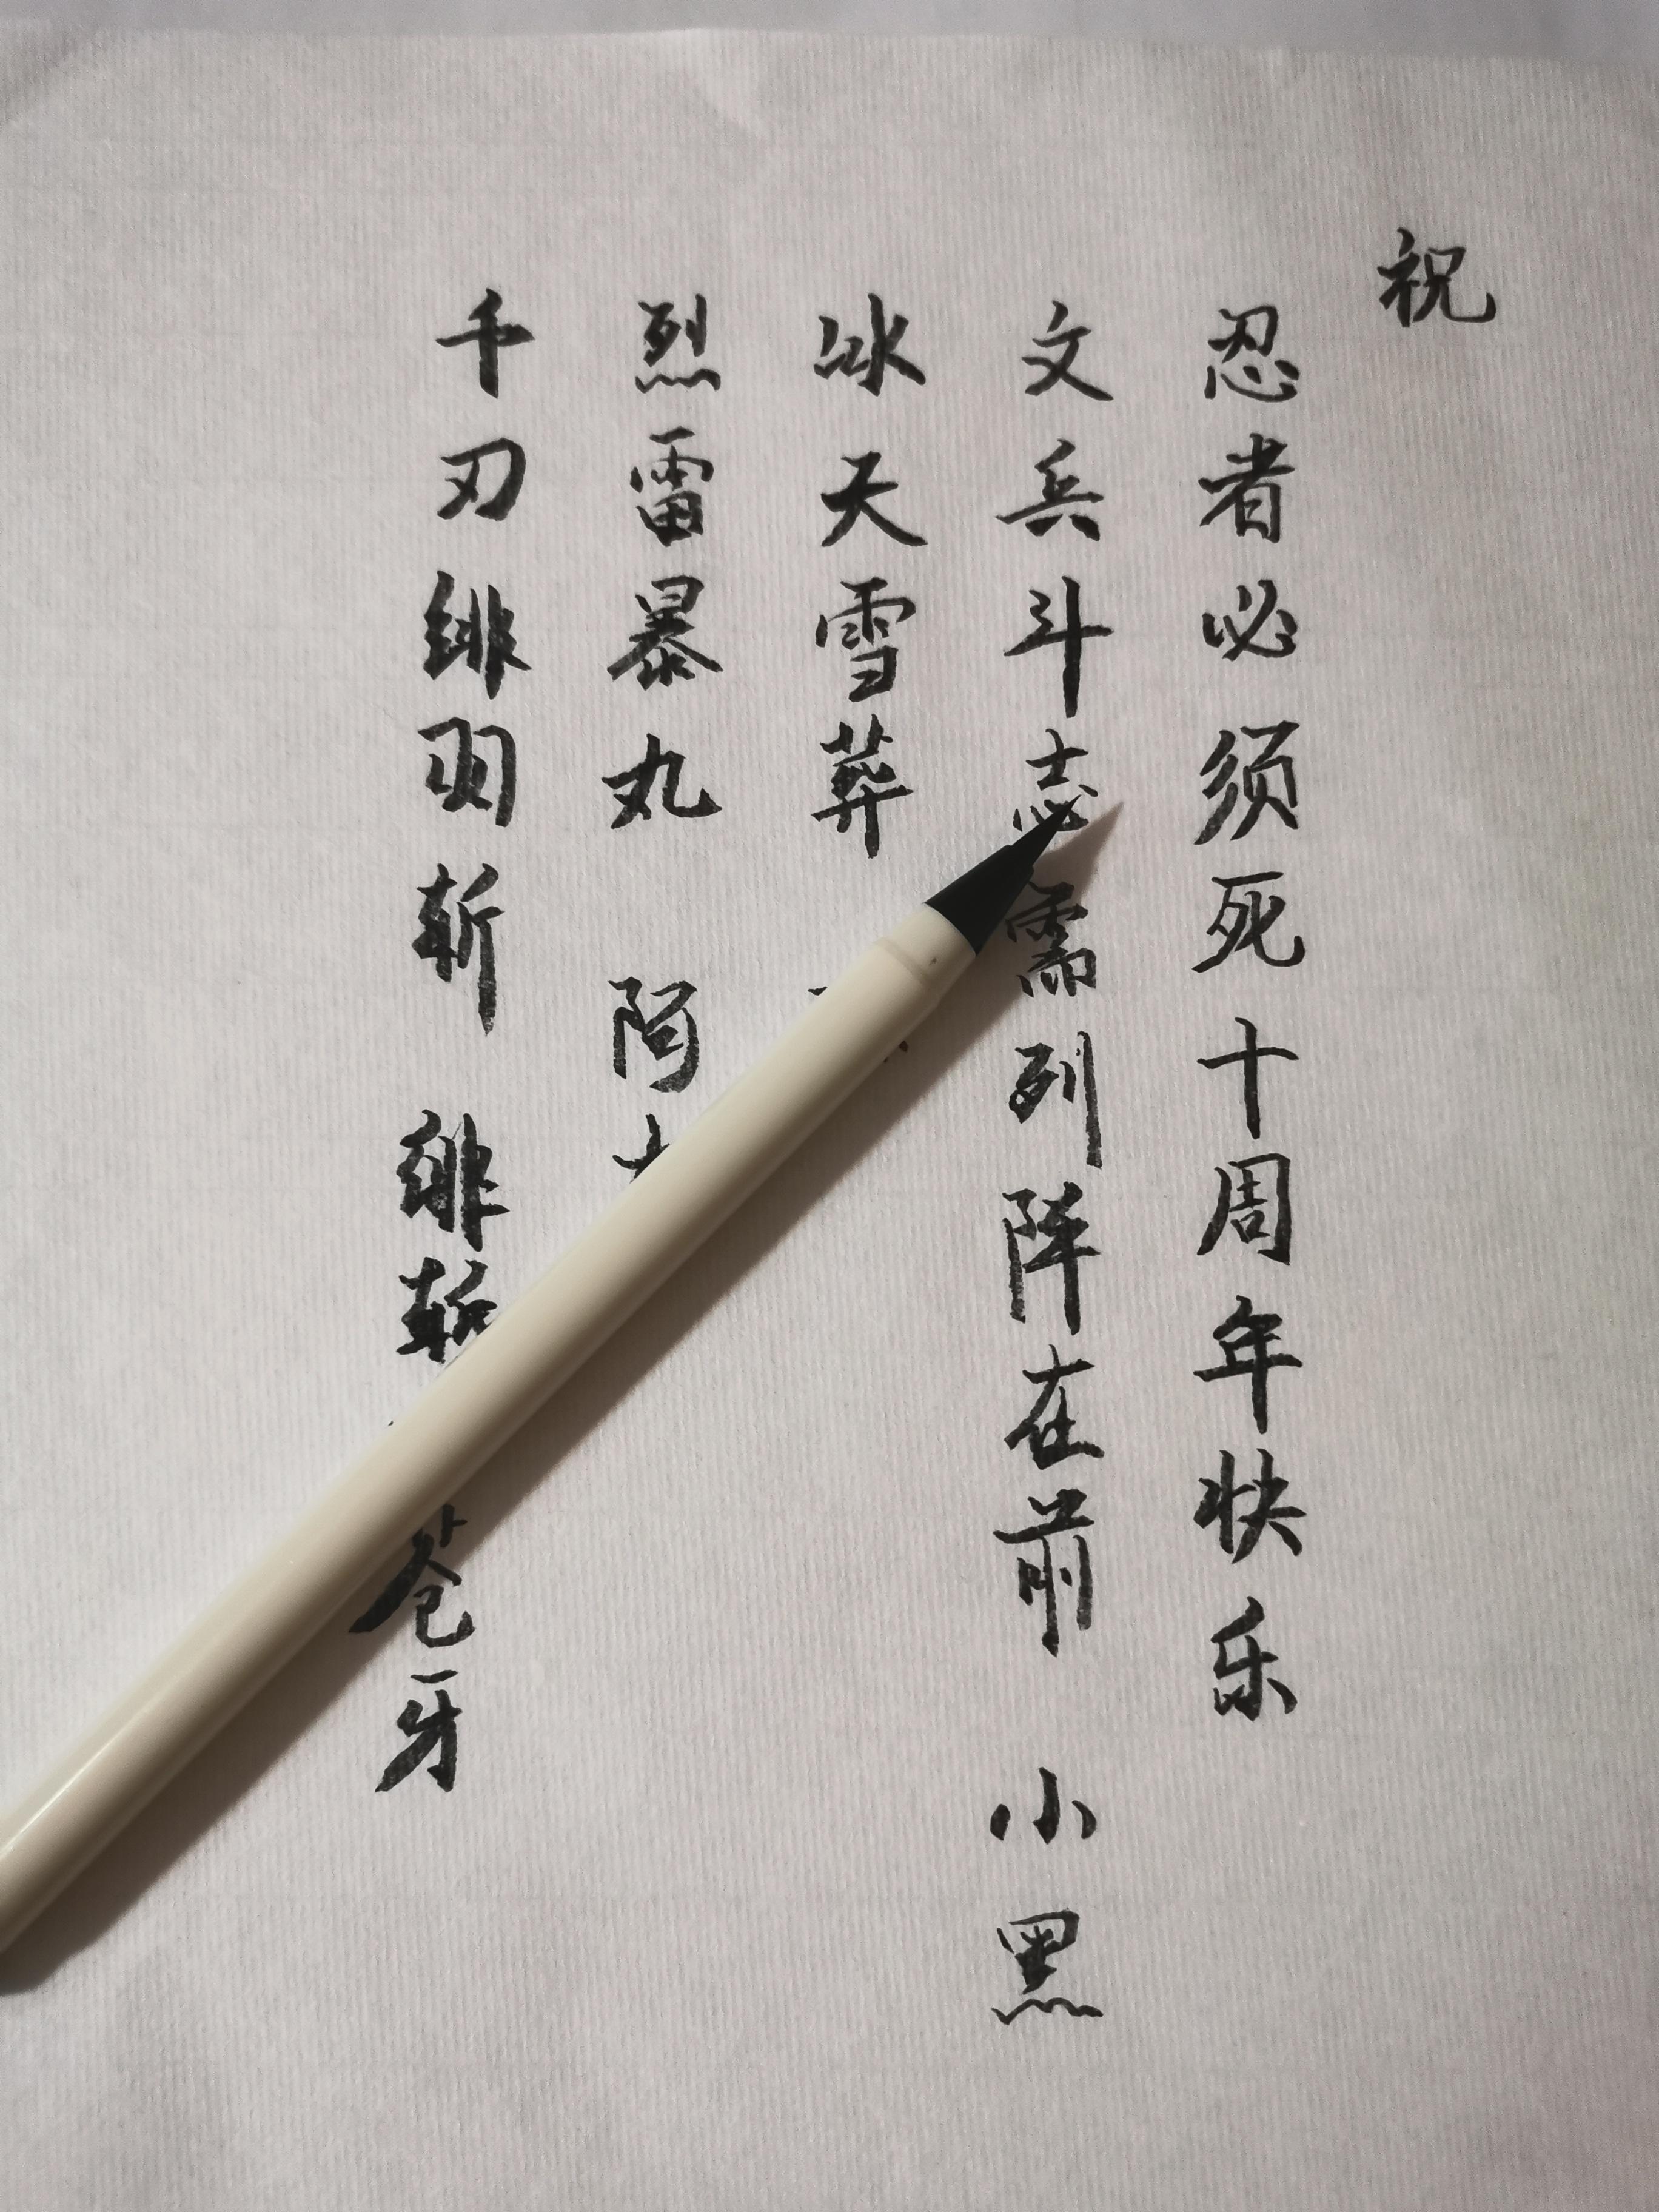 祝
忍者必须死十周年快乐
文兵斗志需列阵在前 小黑
冰天雪葬
烈雷暴丸 阿
千刃绯羽斩 绯斩 苍牙